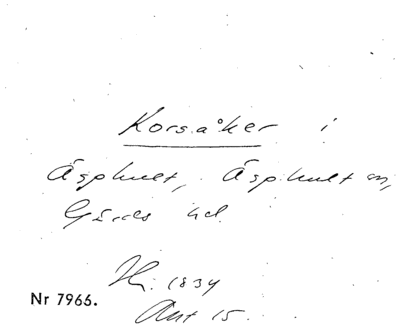 Korsåker i
Äsphult, Äsphult sn,
Gärds hd.
Hi. 1834
Akt 15.
Nr 7966.